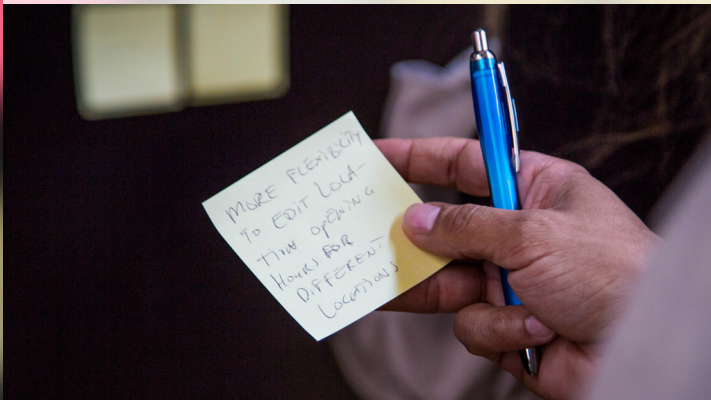 MORE FLEXIBILITY
TO EDIT LOCA-
TION OPENING
HOURS FOR
DIFFERENT
LOCATIONS